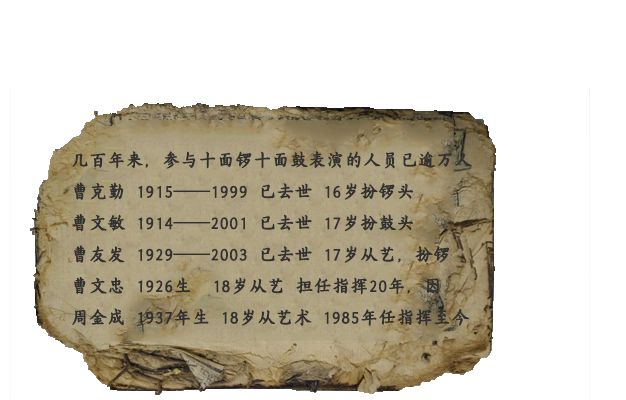 几百年来，参与十面锣十面鼓表演的人员已逾万人
曹克勤 1915——1999 已去世 16岁扮锣头
曹文敏 1914——2001 已去世 17岁扮鼓头
曹友发 1929——2003 已去世 17岁从艺，扮锣
曹文忠 1926生 18岁从艺 担任指挥20年，因
周金成 1937年生 18岁从艺术 1985年任指挥至今